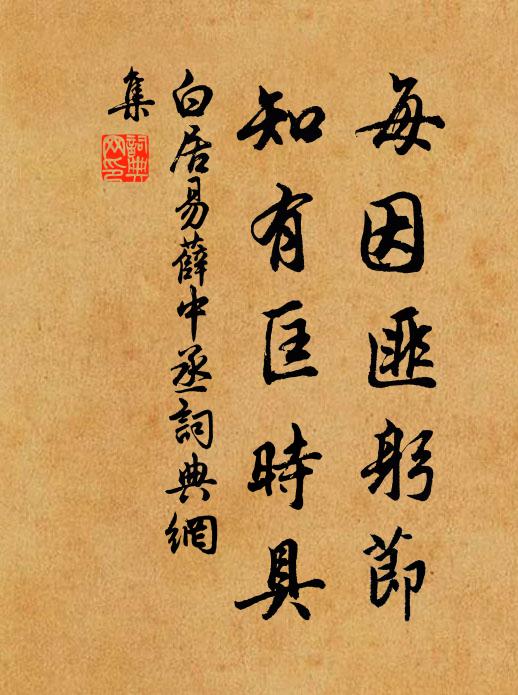 每因匪躬節
知有匡時具
白居易薛中丞詞典網
集
詞典
网印